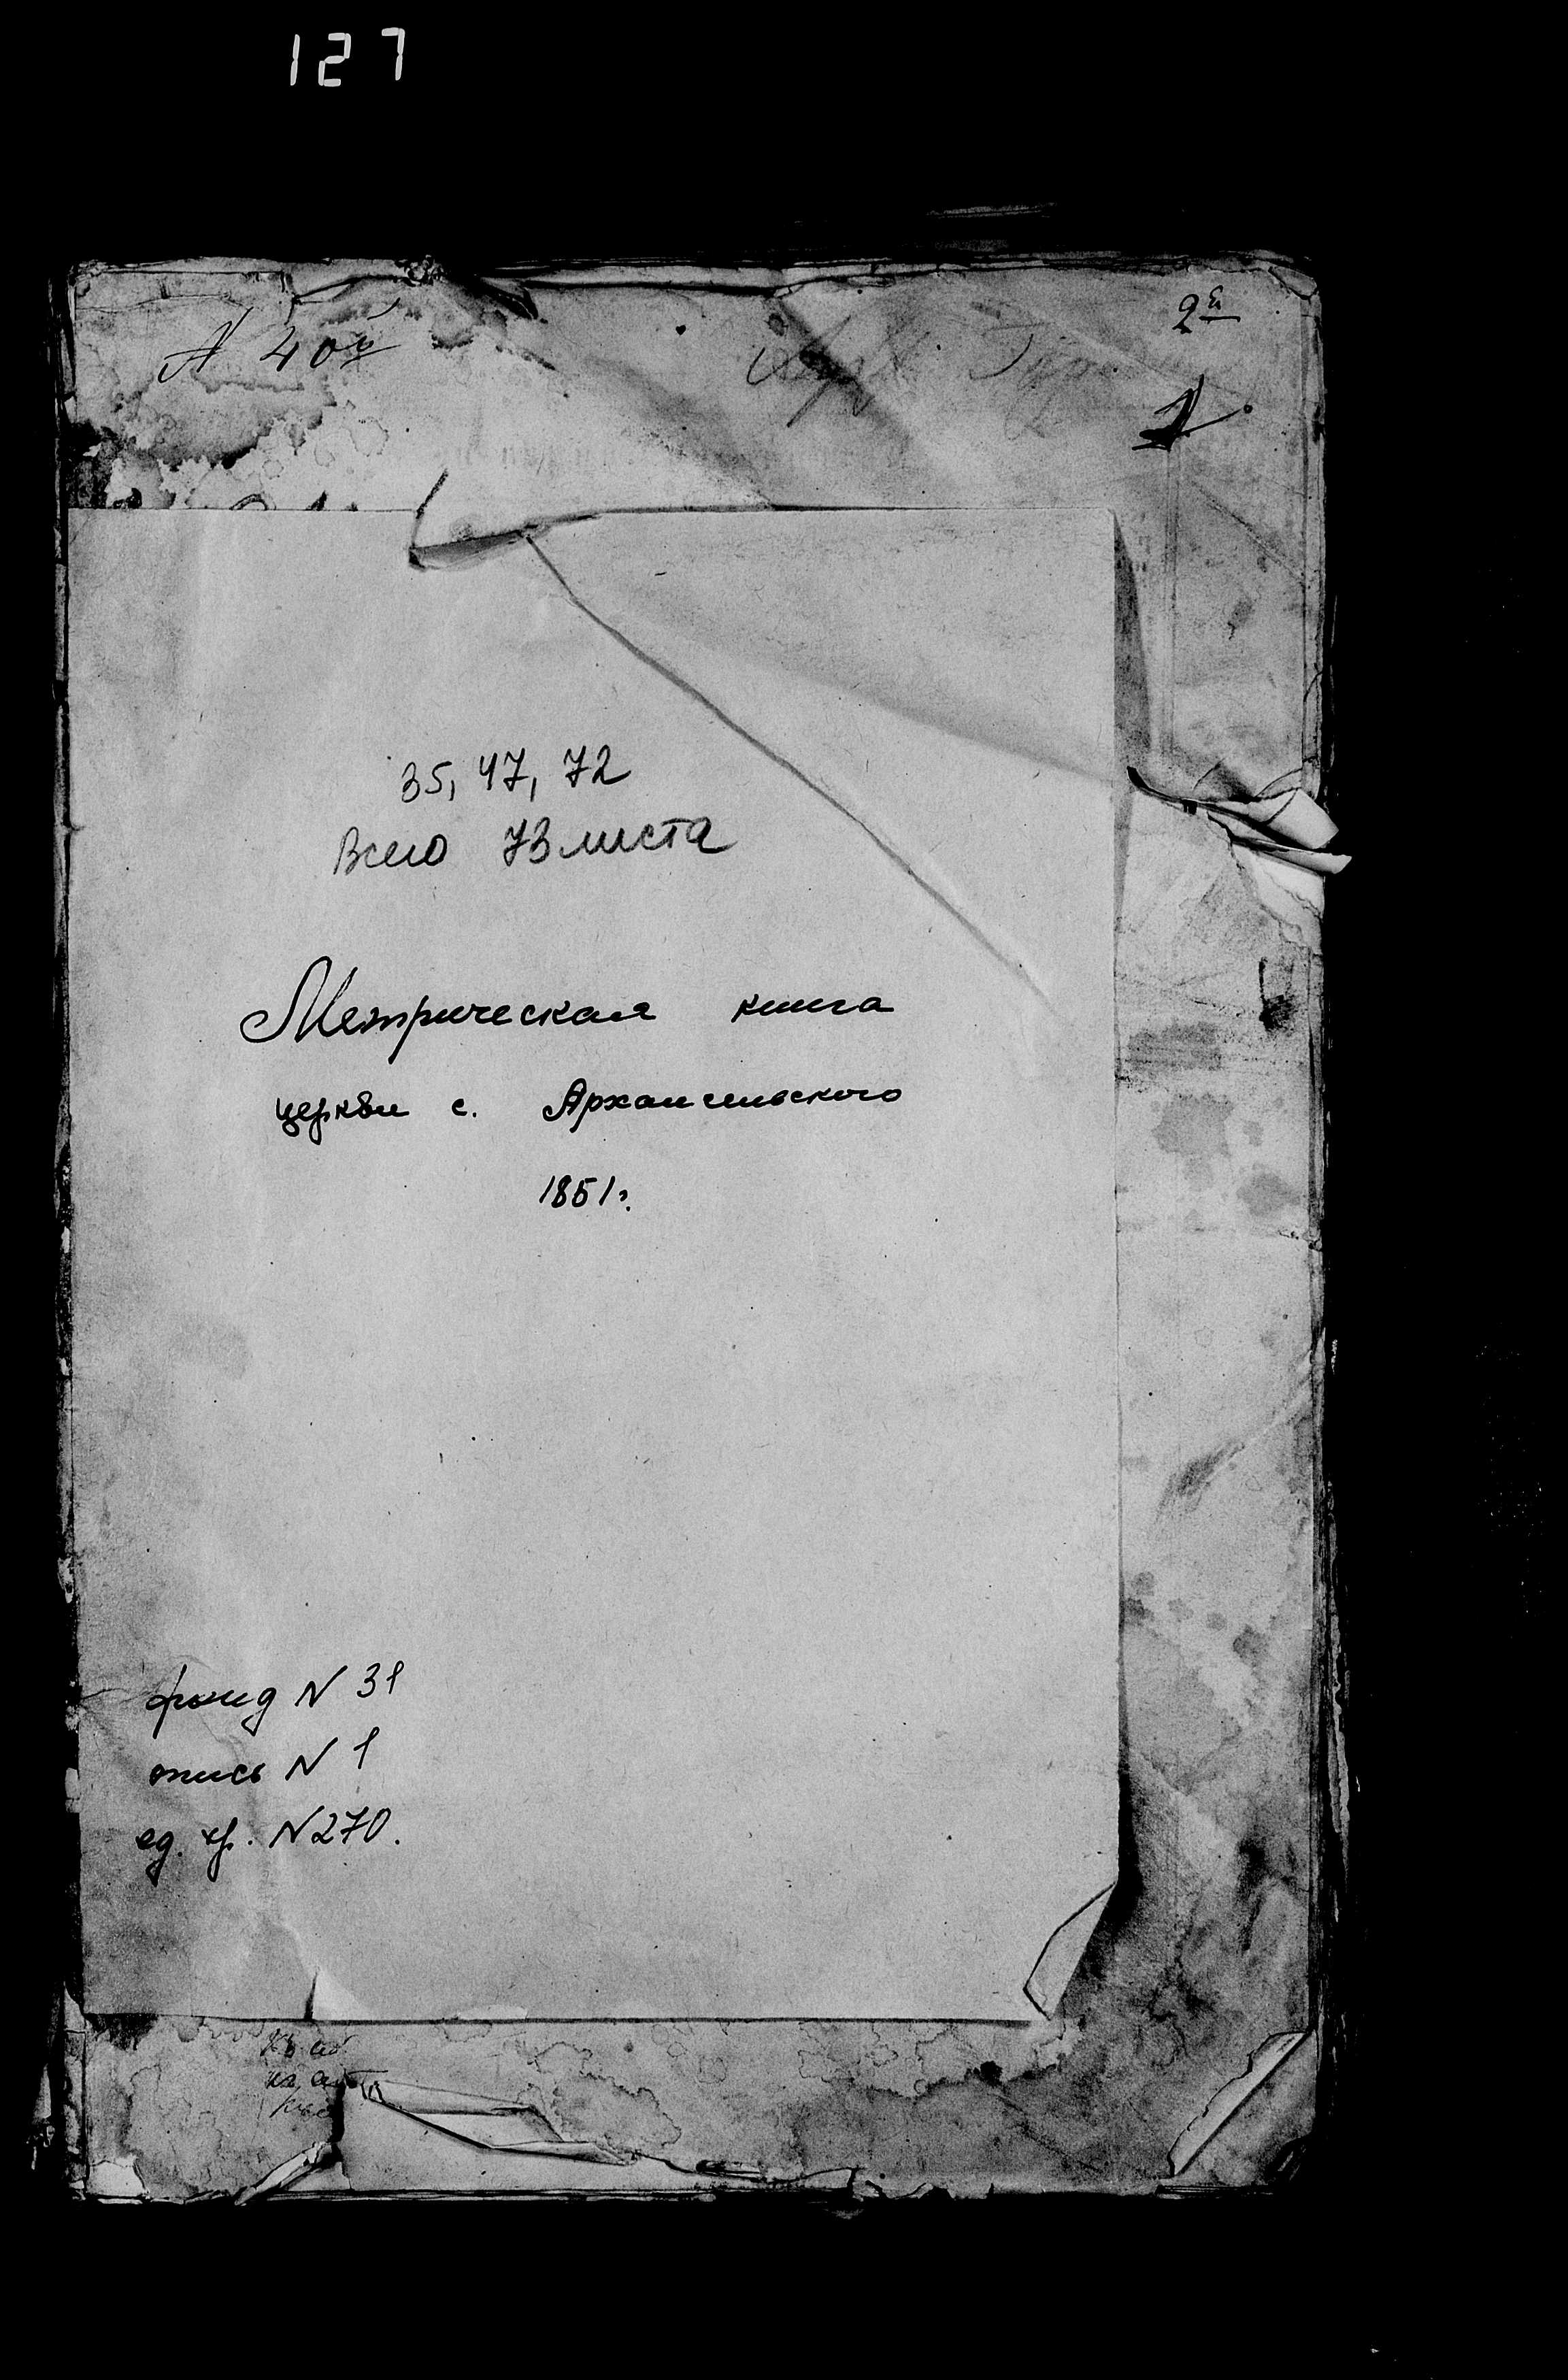 127
2й
№ 40й
1
35, 47, 72
Всего 73 листа
Метрическая книга
церкви с. Архангельского
1851г.
фонд N 31
опись N 1
ед. хр. N 270.